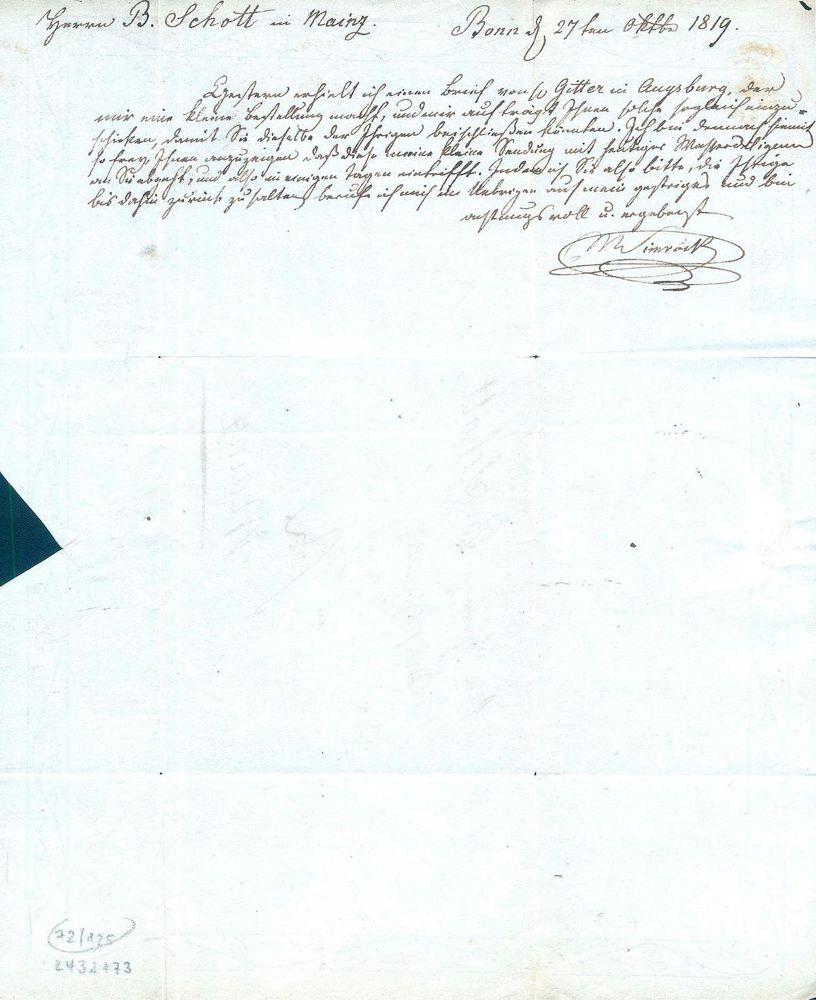 Herrn B. Schott in Mainz. Bonn d 27ten Oktbr 1819.
Gestern erhielt ich einen Brief von Gitter in Augsburg, der
mir eine kleine Bestellung macht, und mir aufträgt Ihnen solche sogleich einzu=
schicken, damit Sie dieselbe der Ihrigen beischließen könnten. Ich bin demnach hiemit
so frey, Ihnen anzuzeigen daß diese meine kleine Sendung mit heutiger
an Sie abgeht, und also in einigen Tagen eintrifft. Indem ich Sie also bitte, die Ihrige
bis dahin zurück zu halten, berufe ich mich im Uebrigen auf mein gestriges und bin
achtungsvoll u. ergebenst
N Simrock
72/125
2432473